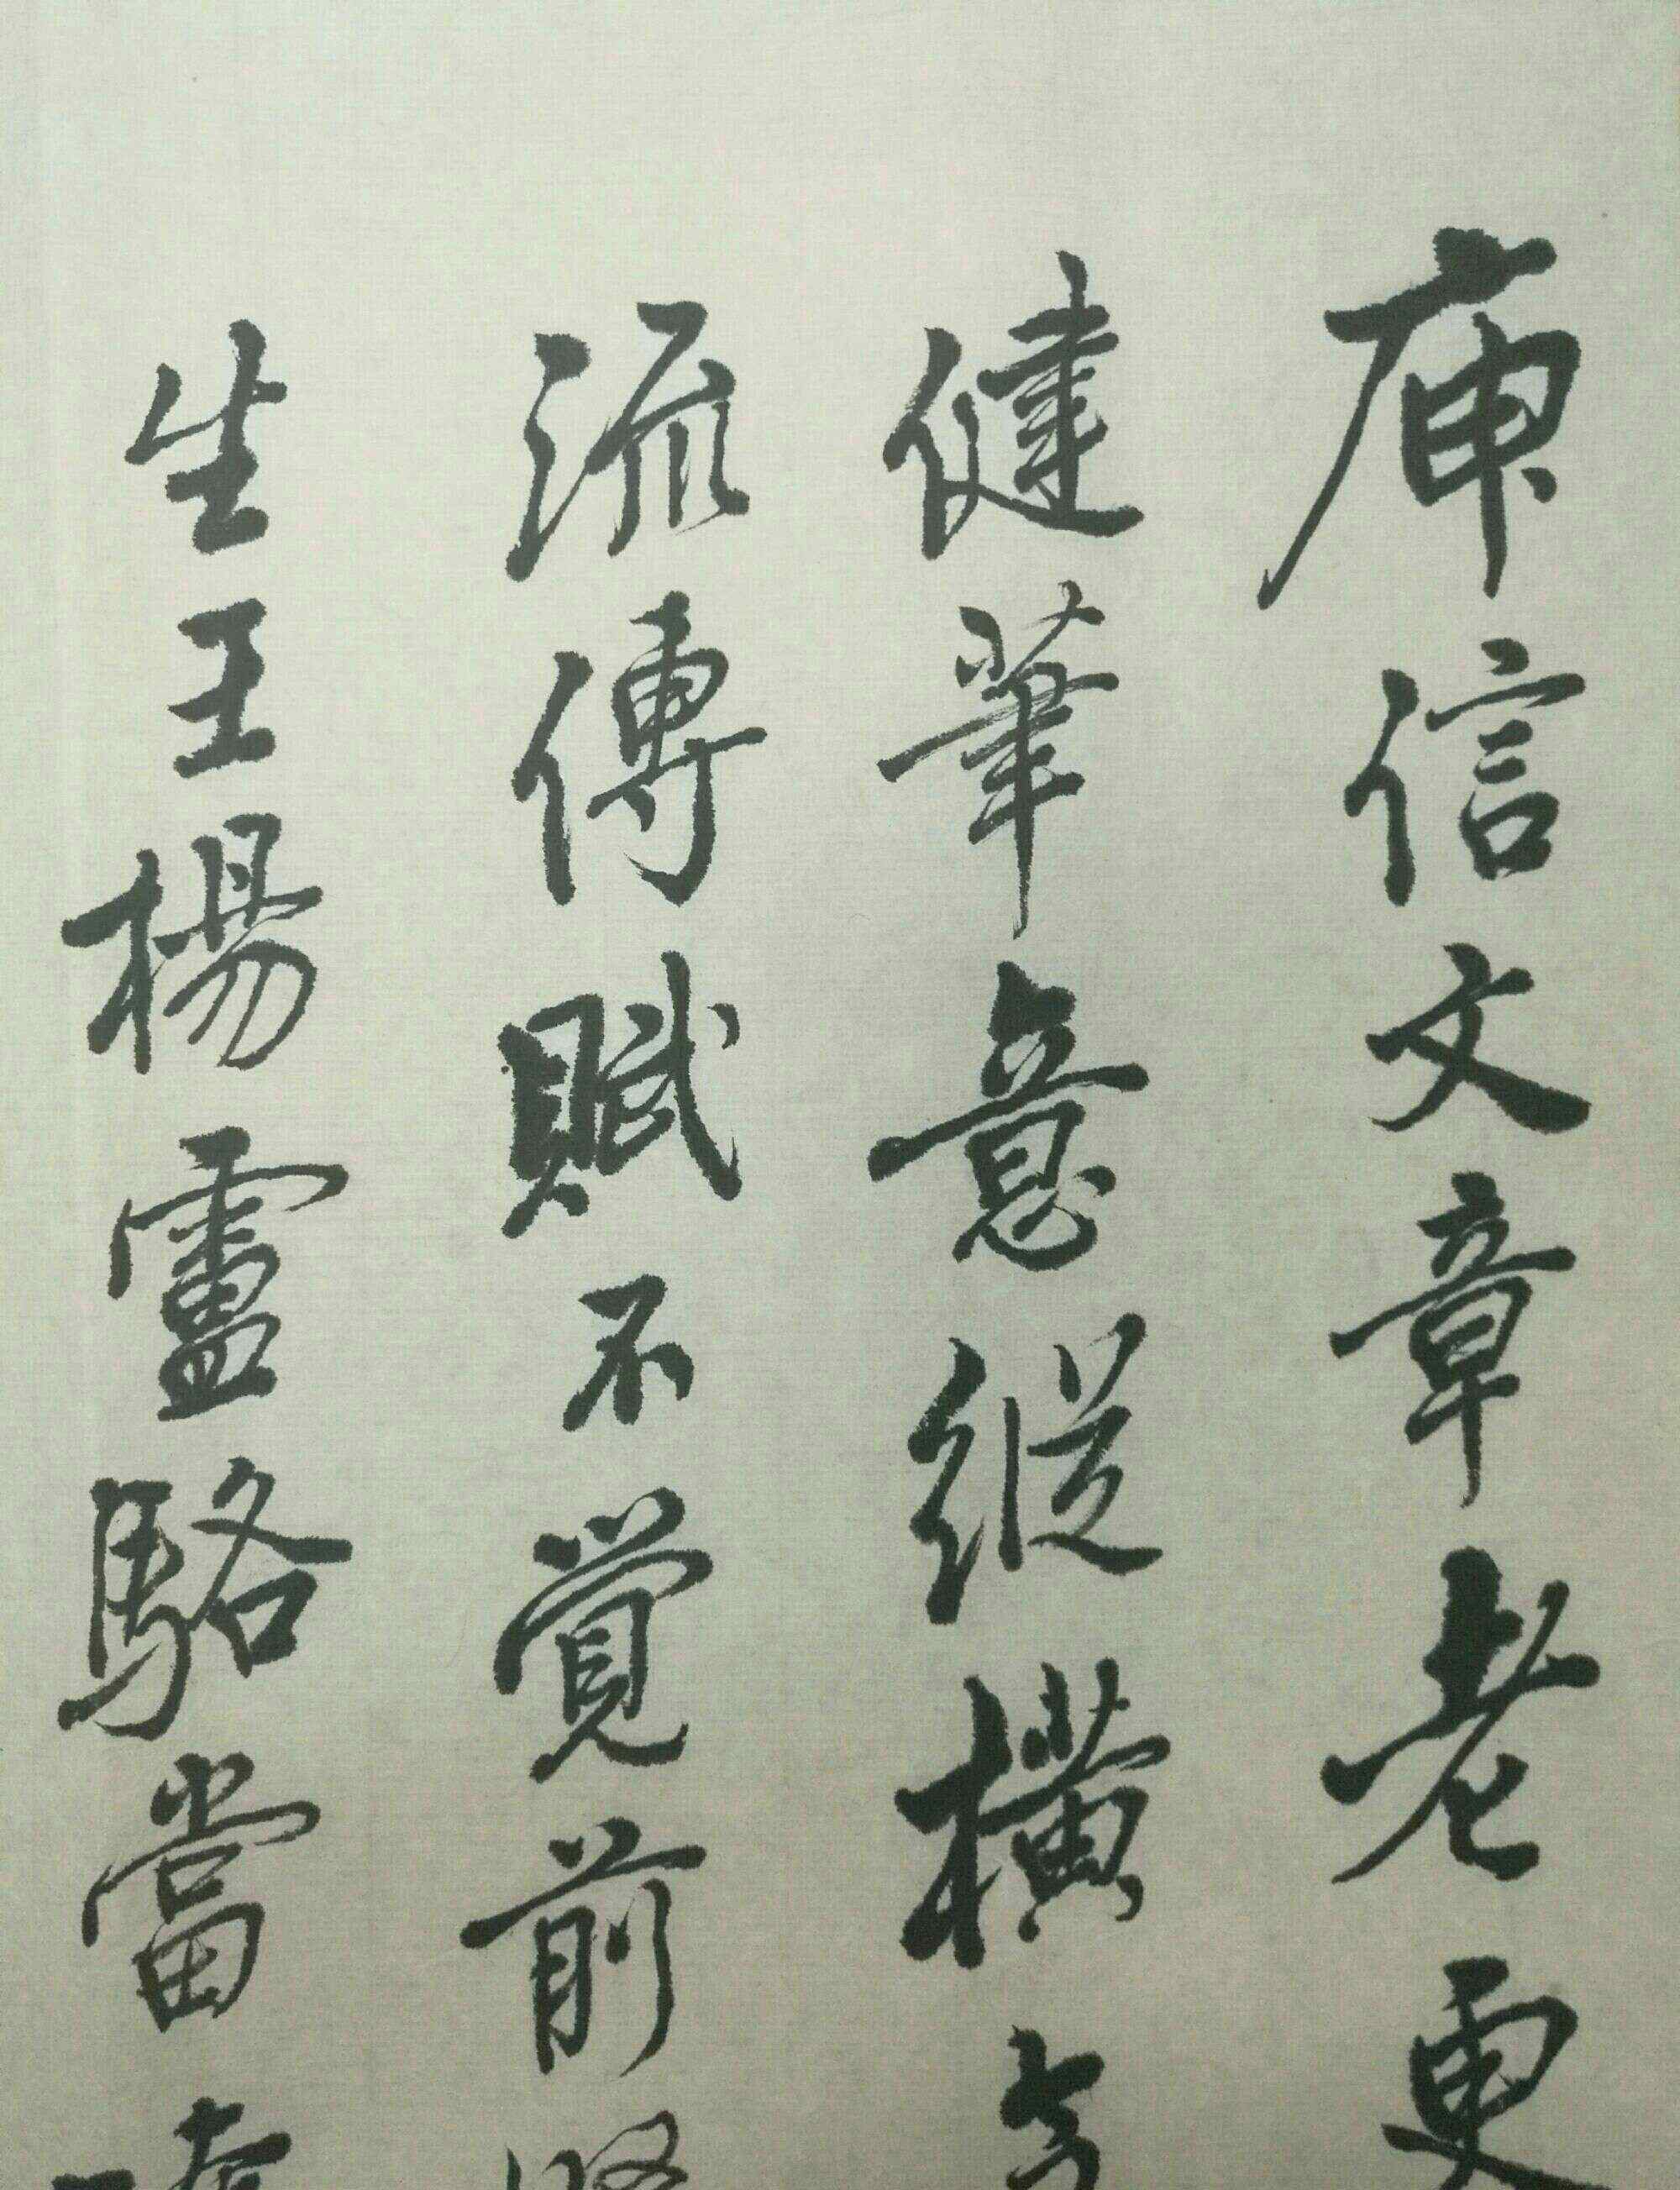 庾信文章老更
健筆意縱橫今
流傳賦不覺前賢
生王楊盧駱當時